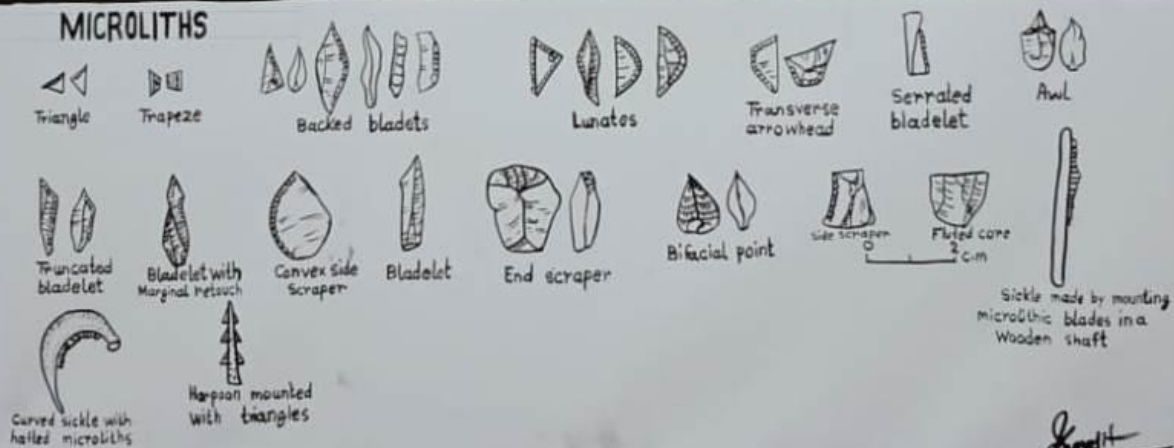 MICROLITHS
Triangle
Trapeze
Backed bladets
Lunates
Transverse
arrowhead
Serraled
bladelet
Awl
Truncated
bladelet
Bladelet with
Marginal retouch
Convex side
Scraper
Bladelet
End scraper
Bifacial point
Side scraper
Fluted core
0 2
c.m
Sickle made by mounting
microlithic blades in a
Wooden shaft
Curved sickle with
hafted microliths
Harpoon mounted
with triangles